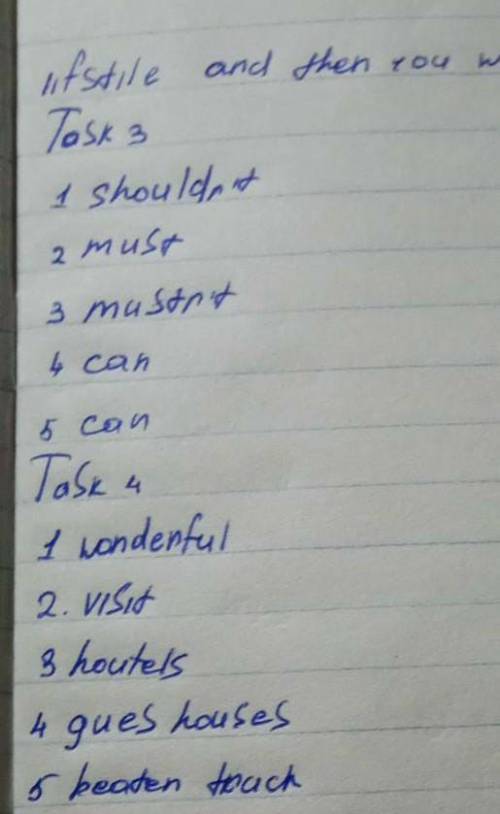 lifstile and then you w
Task 3
1 shouldn't
2 must
3 mustn't
4 can
5 can
Task 4
1 wonderful
2. visit
3 houtels
4 gues houses
5 beaten track